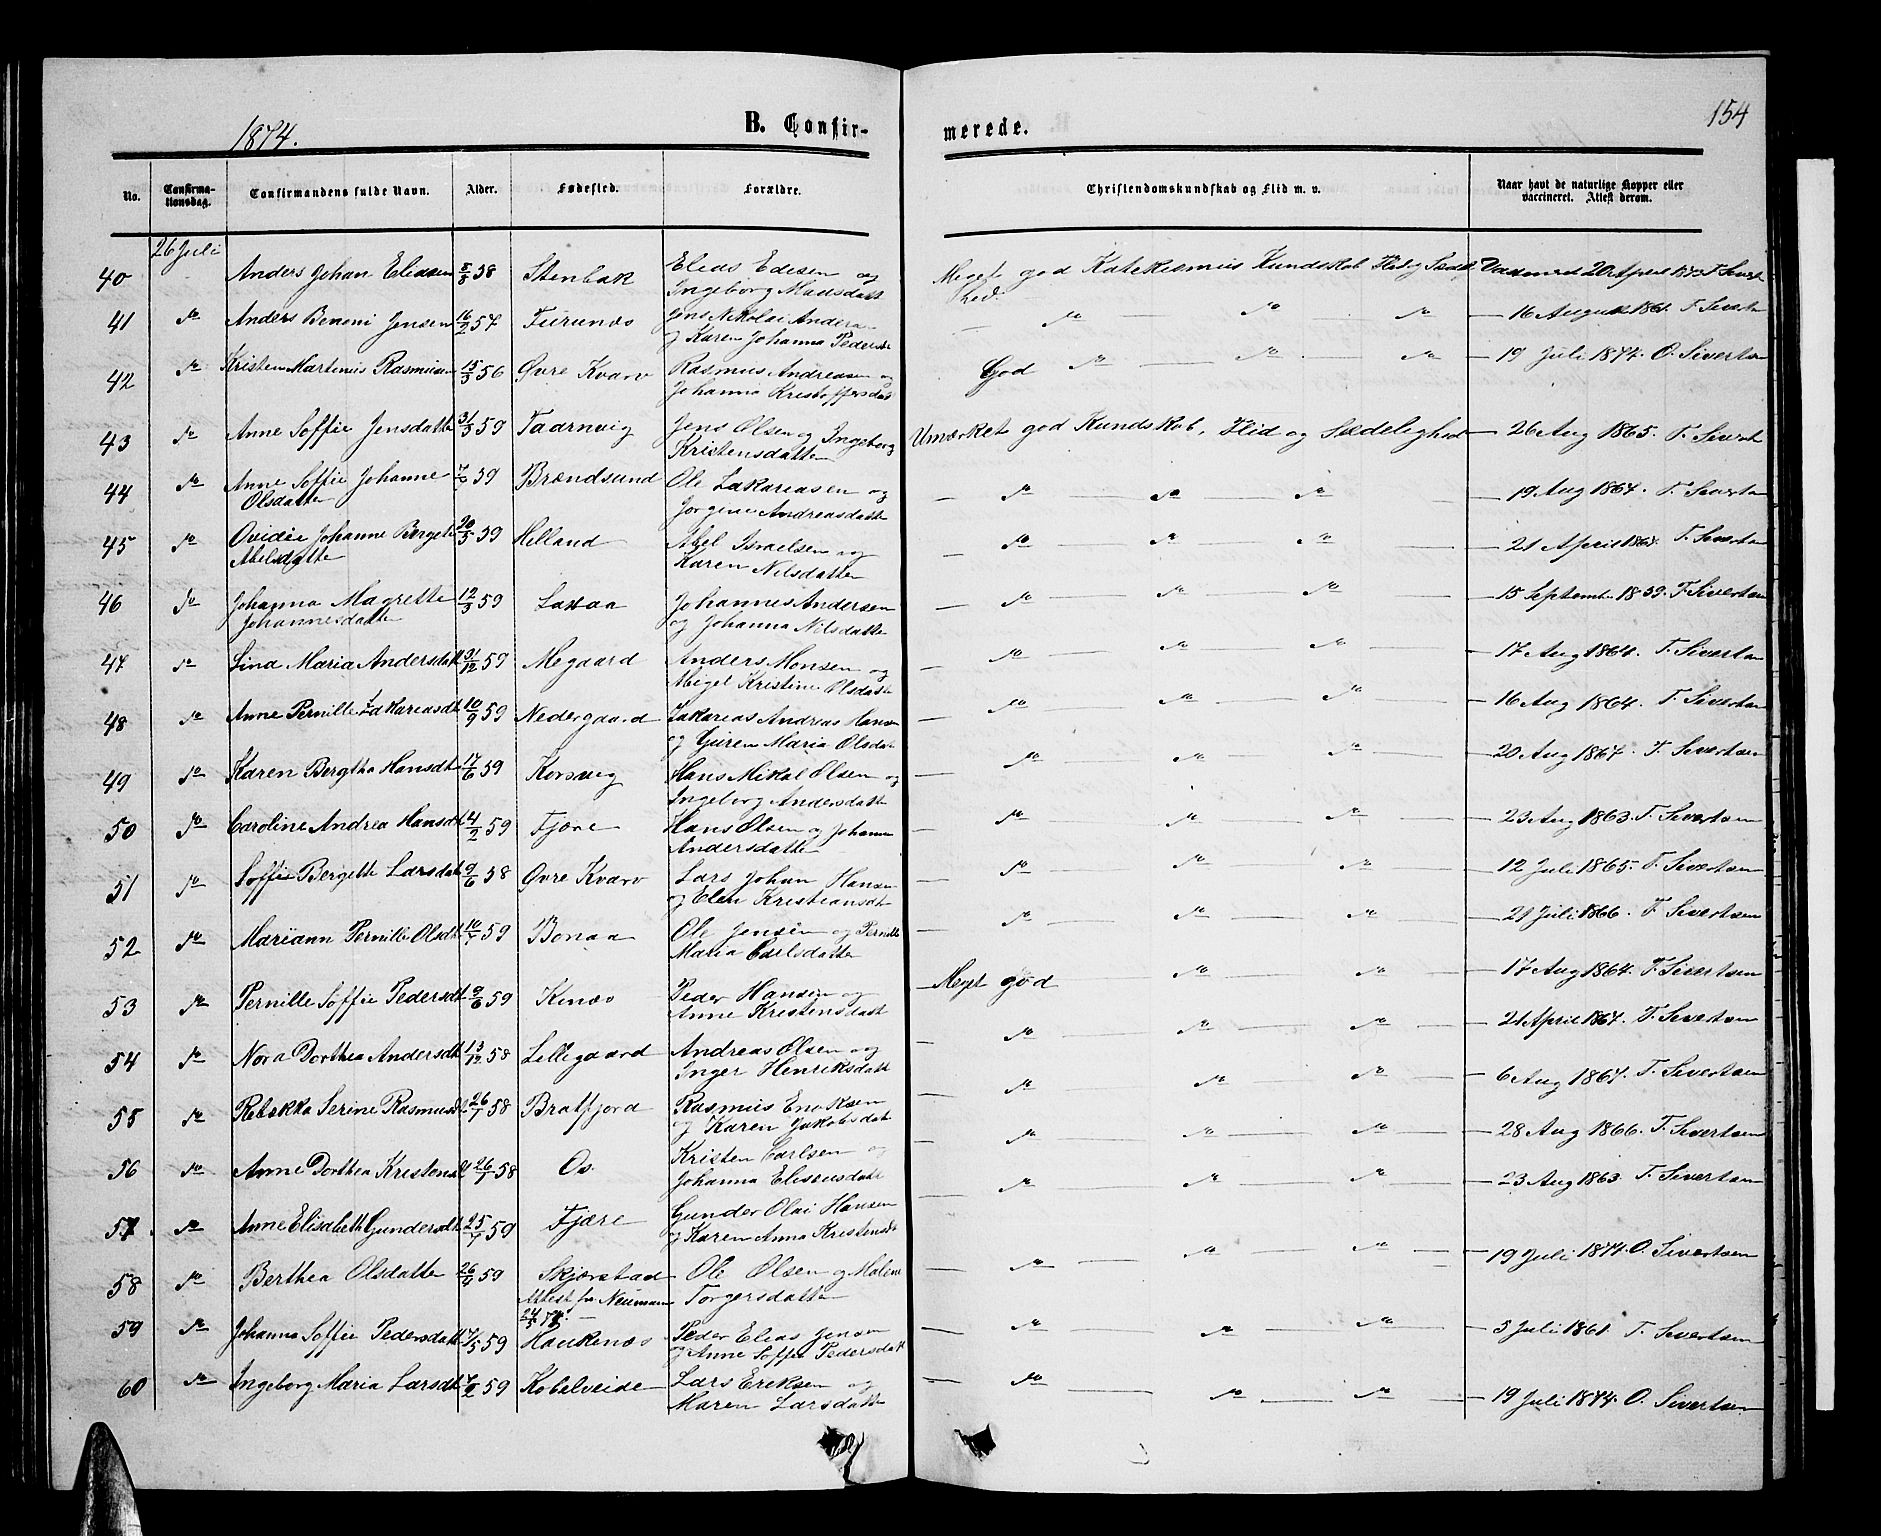 154
1874.
B. Confir-
merede.
No.
Confirma-
tionsdag.
Confirmandens fulde Navn.
Alder.
Fødested.
Forældre.
Christendomskundskab og Flid m. v.
Naar havt de naturlige Kopper eller
vaccineret. Attest derom.
26 Juli
40 Anders Johan Eliassen 8/8 58 Stenbak Elias Edisen og
Ingeborg Hansdatt
Meget god Katekismus Kundskab Flid 20 April
hed.
41 do Anders Benoni Jensen 16/2 57 Furunæs Jens Nikolai Anders
og Karen Johanna Pedersdt
do do do 16 August 1861 T. Sivertsn
42 do Kristen Martenus Rasmusen 15/3 56 Øvre Kvarv Rasmus Andreasen og
Johanna Kristoffersdat
God do do do 19 Juli 1874. O. Sivertsn
43 do Anne Soffie Jensdatte 31/3 59 Taarnvig Jens Olsen og Ingeborg
Kristensdatte
Umærket god Kundskab, Flid og Sædelighed 26 Aug 1865. T. Sivert
44 do Anne Soffie Johanne 59 Brændsund Ole Zakariasen og
Olsdatte Jorgine Andreasdatte
do do do 19 Aug 1864. T. Sivertsn
45 do Ovidie Johanne Bergete 20/5 59 Helland Abel Israelsen og
Abelsdatte Karen Nilsdatte
do do do 21 April 1863. T. Sivertsn
46 do Johanna Magrette 12/3 59 Laxaa Johannes Andersen
Johannesdatte og Johanna Nilsdatte
do do do 15 Septemb. 1859. T. Sivertsen
47 do Lina Maria Andersdatt 31/12 59 Megaard Anders Monsen og
Abigel Kristine Olsdatt
do do do 17 Aug 1864. T. Sivertsn
48 do Anne Pernille Zakariasdt 10/9 59 Nedergaard Zakarias Andreas Hansen
og Guren Maria Olsdat
do do do 16 Aug 1864. T. Sivertsen
49 do Karen Bergtha Hansdt 17/6 59 Korsvig Hans Mikal Olsen og
Ingeborg Andersdatt
do do do 20 Aug 1864. T. Sivertsen
50 do Caroline Andrea Hansdt 4/2 59 Fjære Hans Olsen og Johanna
Andersdatte
do do do 23 Aug 1863. T. Sivertsen
51 do Soffie Bergette Larsdat 9/6 58 Øvre Kvarv Lars Johan Hansen
og Elen Kristiansdt
do do do 12 Juli 1865. T. Sivertsen
52 do Mariann Pernille Olsdt 10/7 59 Bonaa Ole Jensen og Pernille
Maria Carlsdatte
do do do 21 Juli 1866. T. Sivertsen
53 do Pernille Soffie Pedersdt 9/6 59 Kinæs Peder Hansen og
Anne Kristensdatt
Meget god do do 17 Aug 1864. T. Sivertsen
54 do Nora Dorthea Andersdt 13/12 58 Lillegaard Andreas Olsen og
Inger Henriksdatt
do do do 21 April 1864. T. Sivertsen
55 do Rebekka Serine Rasmusdt 26/7 58 Bratfjord Rasmus Enoksen
og Karen Jakobsdat
do do do 6 Aug 1864. T. Sivertsen
56 do Anne Dorthea Kristensdt 26/7 58 Os. Kristen Carlsen og
Johanna Eliseusdatt
do do do 28 Aug 1866. T. Sivertsen
57 do Anne Elisabeth Gundersdt 25/7 59 Fjære Gunder Olai Hansen
og Karen Anna Kristensdt
do do do 23 Aug 1863. T. Sivertsen
58 do Berthea Olsdatte 26/4 59 Skjerstad Ole Olsen og Malene
Attest fra Neumann Torgersdatte
24/5 74.
do do do 19 Juli 1874. O. Sivertsen
59 do Johanna Soffie Pedersdatt 7/5 59 Haukenæs Peder Elias Jensen
og Anne Soffie Pedersdatt
do do do 3 Juli 1861. T. Sivertsen
60 do Ingeborg Maria Larsdt 7/2 59 Kobelveide Lars Eriksen og
Maren Larsdatte
do do do 19 Juli 1874. O. Sivertsen